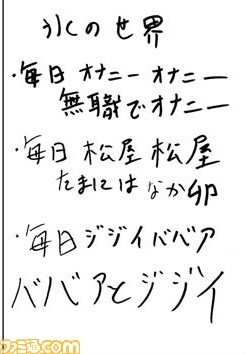 氷の世界
・毎日 オナニー オナニー
無職でオナニー
・毎日 松屋 松屋
たまには なか卯
・毎日 ジジイ ババア
ババアとジジイ
ファミ通.com